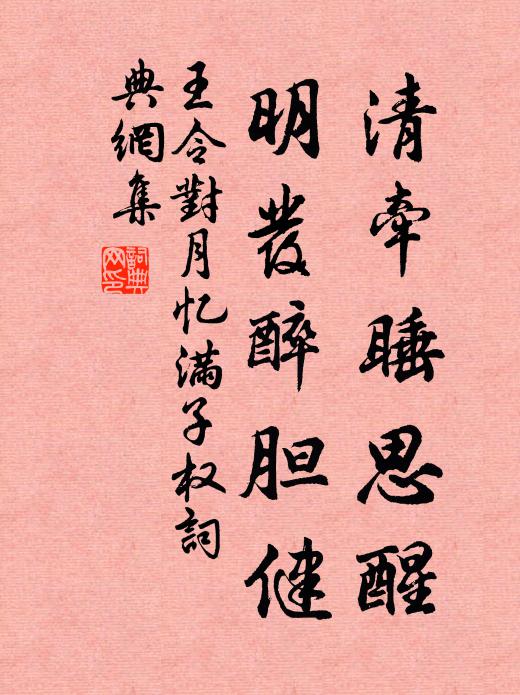 清牵睡思醒
明发醉胆健
王令對月忆满子权詞
典網集
詞典
网印